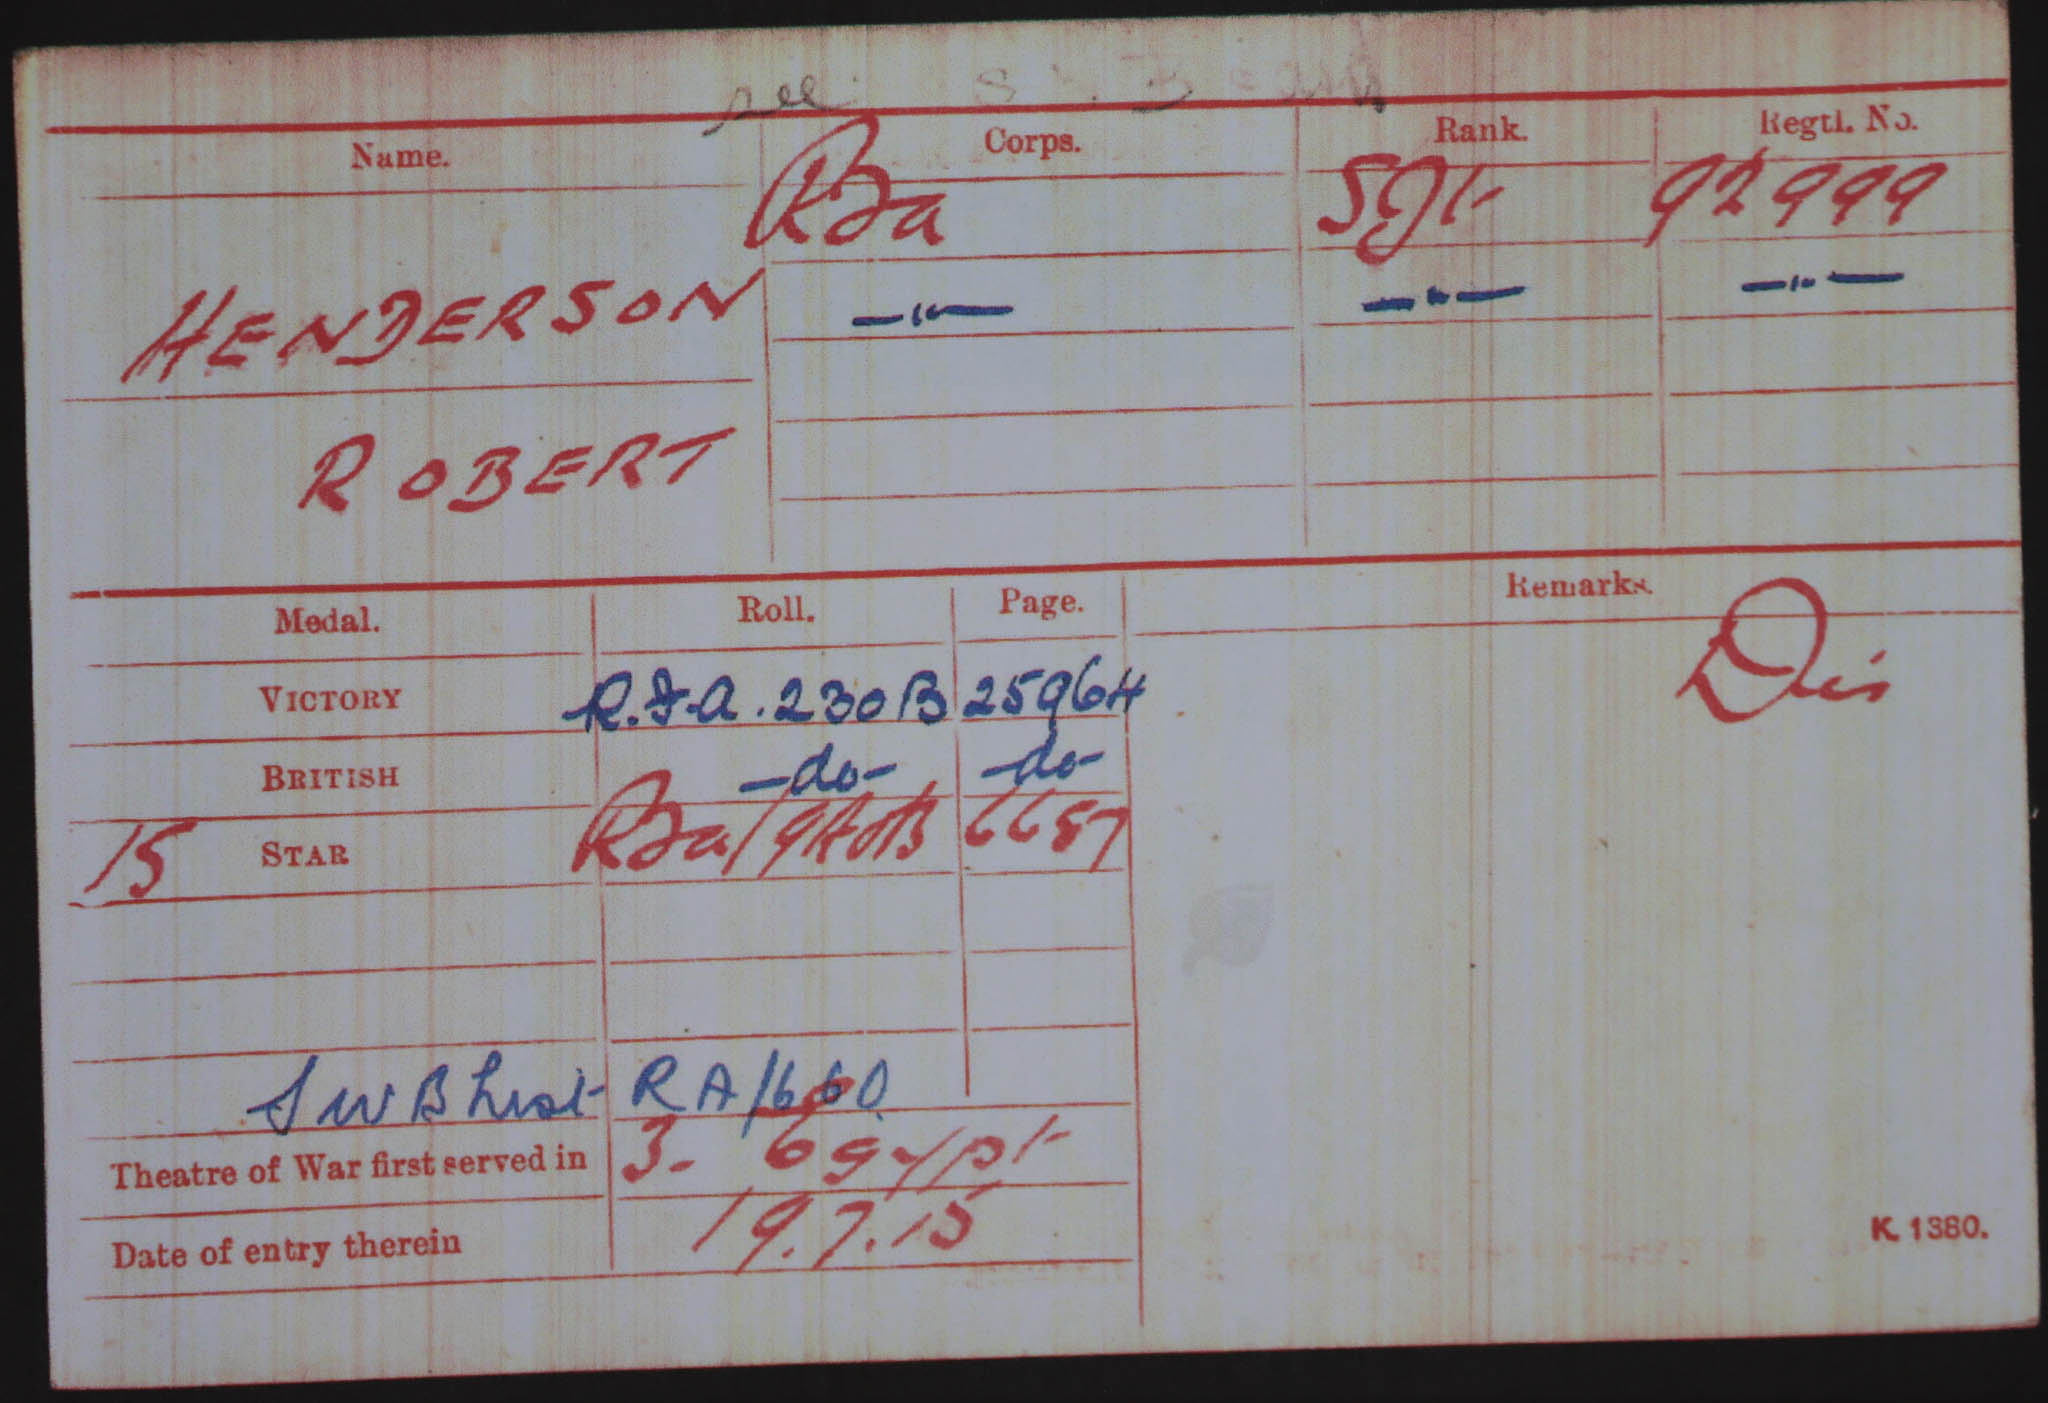 see
Name. Corps. Rank. Regtl. No.
RFA Sjt 92999
HENDERSON —"— —"— —"—
ROBERT
Medal. Roll. Page. Remarks.
VICTORY R.F.A. 230B 25964 Dis
BRITISH -do- -do-
15 STAR RFA/940B 6687
SWB List RA/660
Theatre of War first served in 3- Egypt
Date of entry therein 19.7.15
K. 1380.